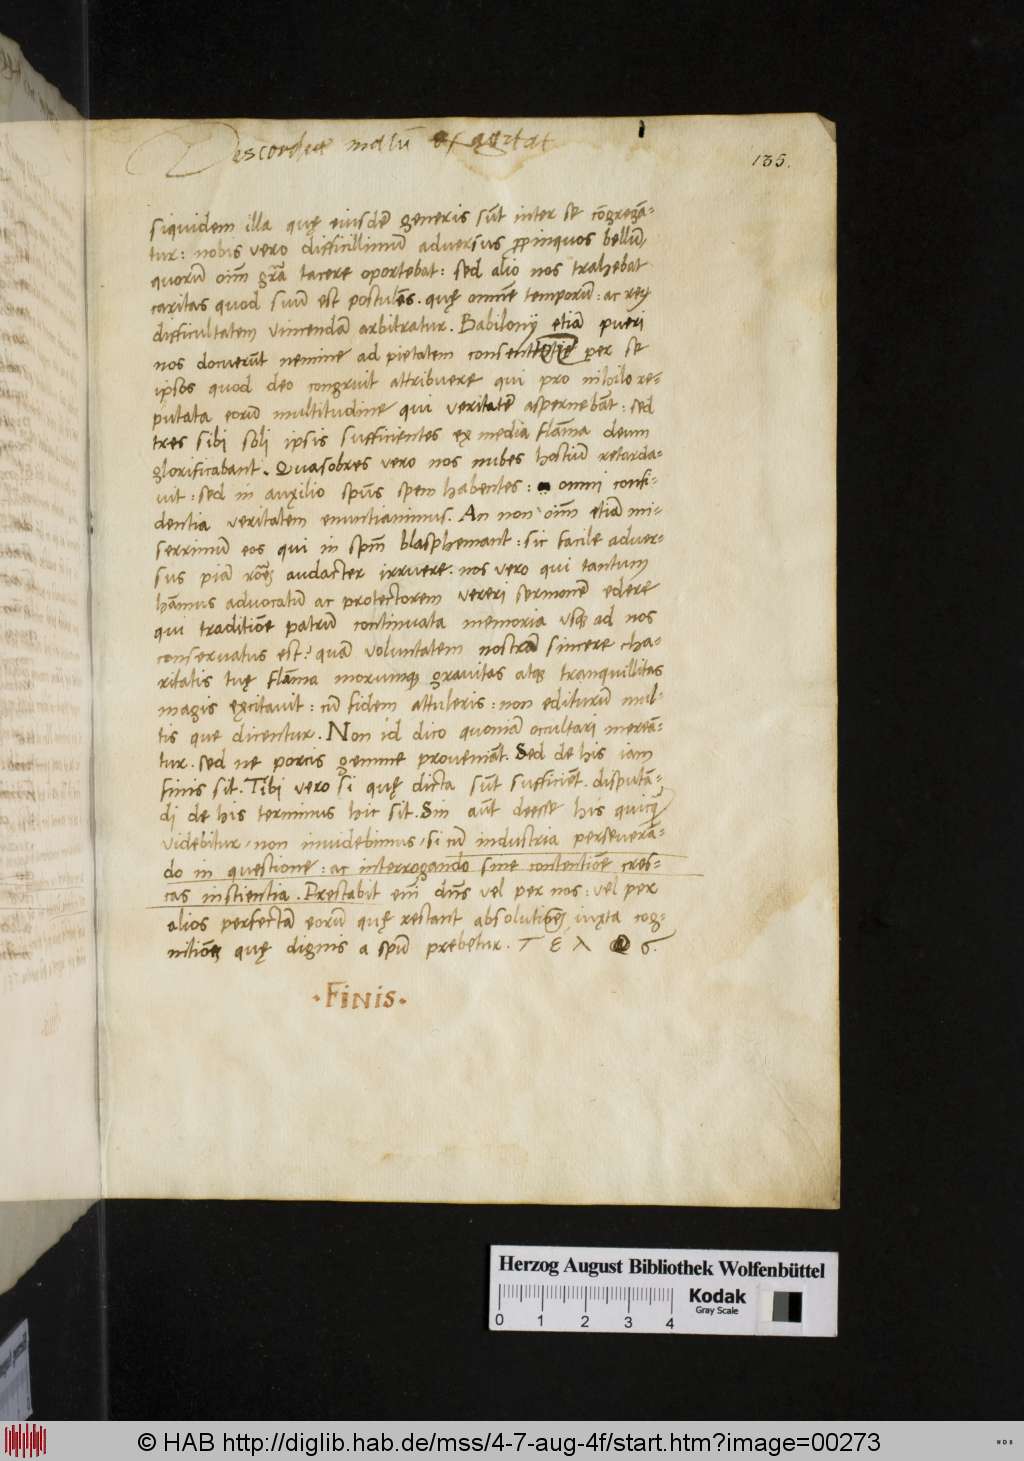 malũ
135.
siquidem illa quę eiusdẽ generis sũt inter se cõgregã=
tur: nobis vero difficillimũ adversus ꝓpinquos bellũ,
quorũ oĩm grã tacere oportebat: sed alio nos trahebat
caritas quod suũ est postulẽs. quę omnẽ temporũ: ac rej
difficultatem vincendã arbitratur. Babilonij etiã pueri
nos docuerũt nemine ad pietatem per se
ipsos quod deo congruit attribuere qui pro nihilo re=
putata eorũ multitudine qui veritatẽ aspernebãt: sed
tres sibi soli ipsis sufficientes ex media flãma deum
glorificabant. Quasobres vero nos nubes hostiũ retarda=
vit: sed in auxilio spũs spem habentes: omni confi=
dentia veritatem enuntianimus. An non oĩm etiã mi=
serrimũ eos qui in spm̃ blasphemant: sic facile adver=
sus piã audacter irruere. nos vero qui tantum
hãmus advocatũ ac protectorem vereri sermonẽ edere
qui traditiõe patrũ continuata memoria usqꝫ ad nos
conservatus est? quã voluntatem nostrã sincere cha=
ritatis tuę flãma morumqꝫ gravitas atqꝫ tranquillitas
magis ęxcitavit: cũ fidem attuleris: non editurũ mul=
tis que dicentur. Non id dico quoniã occultari mereã=
tur. sed ne porcis gemme proveniãt. Sed de his iam
finis sit. Tibi vero si quę dicta sũt sufficiẽt. disputã=
di de his terminus hic sit. Sin aũt deesse his quicqꝫ
videbitur, non invidebimus, si cũ industria perseverã=
do in questione: ac interrogando sine contentiõe cres=
cas in scientia. Prestabit eiñ dñs vel per nos: vel per
alios perfectã eorũ quę restant iuxta cog=
nitiõe quę dignis a spũ prebetur. Τ Ε Λ Ο ς.
·Finis·
Herzog August Bibliothek Wolfenbüttel
0 1 2 3 4
Kodak
Gray Scale
© HAB http://diglib.hab.de/mss/4-7-aug-4f/start.htm?image=00273